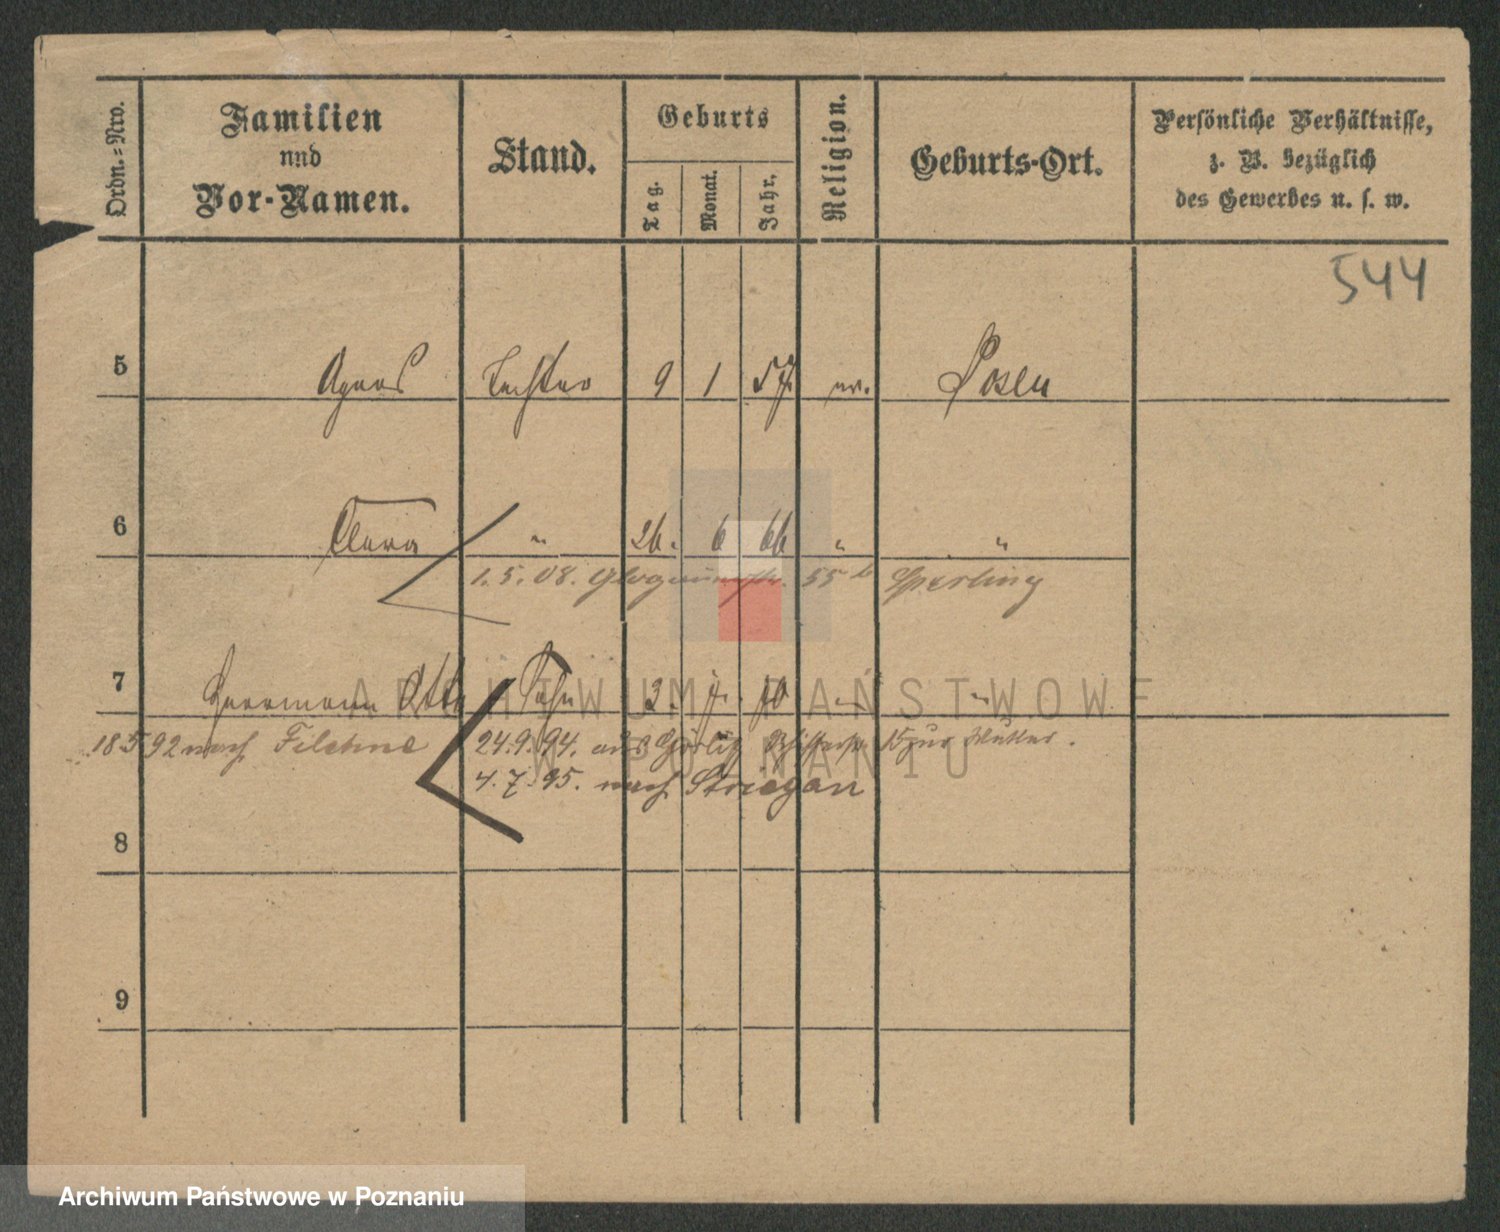 Ordn.-Nro.
Familien
und
Vor-Namen.
Stand.
Geburts
Tag.
Monat.
Jahr.
Religion.
Geburts-Ort.
Persönliche Verhältnisse,
z. B. bezüglich
des Gewerbes u. s. w.
544
5 Agnes Tochter 9 1 57. ev. Posen
6 Clara " 26. 6 66 " "
1.5.08. Glogauerstr. 55 b Sperling
7 Herrmann Otto Sohn 3. 7. 70 " "
18.5 92 nach Filehne 24.9.94. aus Görlitz 15 zur Mutter.
4.7.95. nach Striegau
8
9
ARCHIWUM PAŃSTWOWE
W POZNANIU
Archiwum Państwowe w Poznaniu